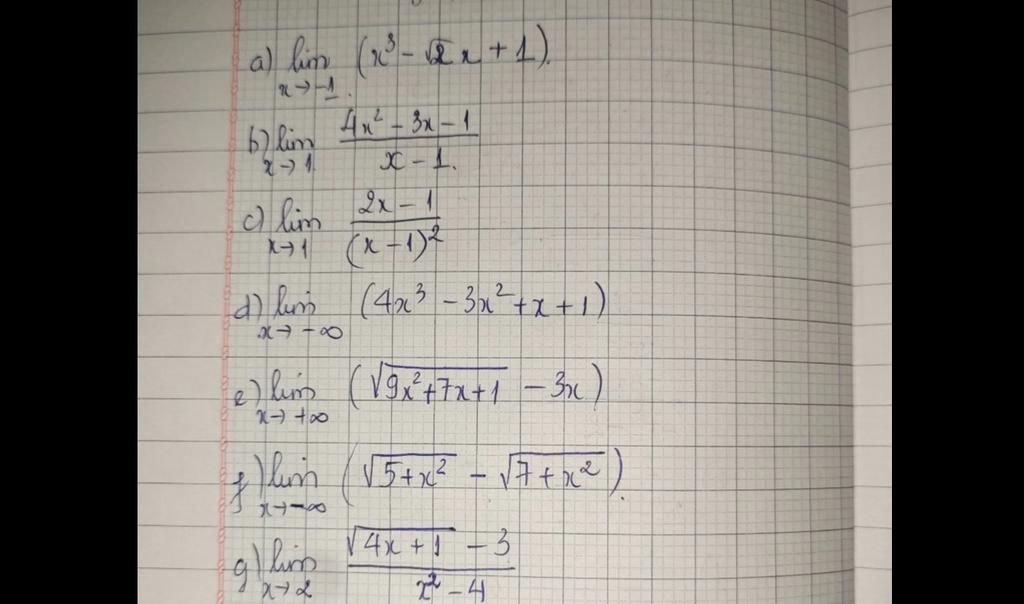 a) lim x→-1 (x³ - √2 x + 1).
b) lim x→1 (4x² - 3x - 1)/(x - 1).
c) lim x→1 (2x - 1)/(x - 1)²
d) lim x→-∞ (4x³ - 3x² + x + 1)
e) lim x→+∞ (√(9x² + 7x + 1) - 3x)
f) lim x→-∞ (√(5 + x²) - √(7 + x²)).
g) lim x→2 (√(4x + 1) - 3)/(x² - 4)